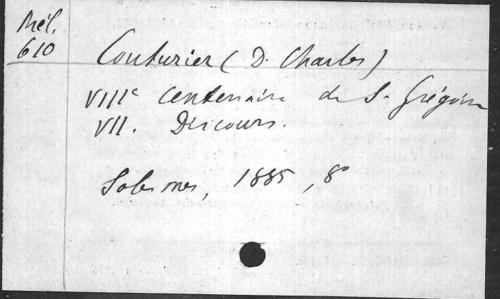 Mél.
610
Couturier (D. Charles)
VIIIe Centenaire de S. Grégoire
VII. Discours.
Solesmes, 1885, 8°